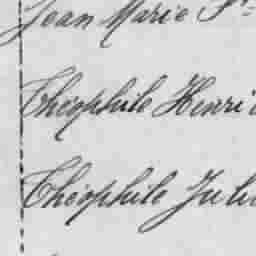 Jean Marie
Théophile Henri
Théophile